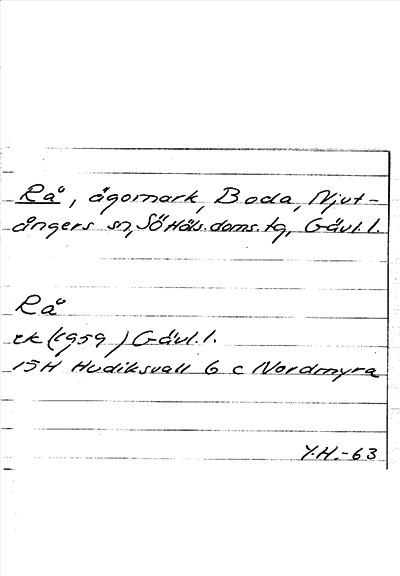 Rå, ägomark, Boda, Njut-
ångers sn, SöHäls. doms. tg, Gävl. l.
Rå
ek (1959) Gävl. l.
15H Hudiksvall 6 c Nordmyra
Y.H.-63